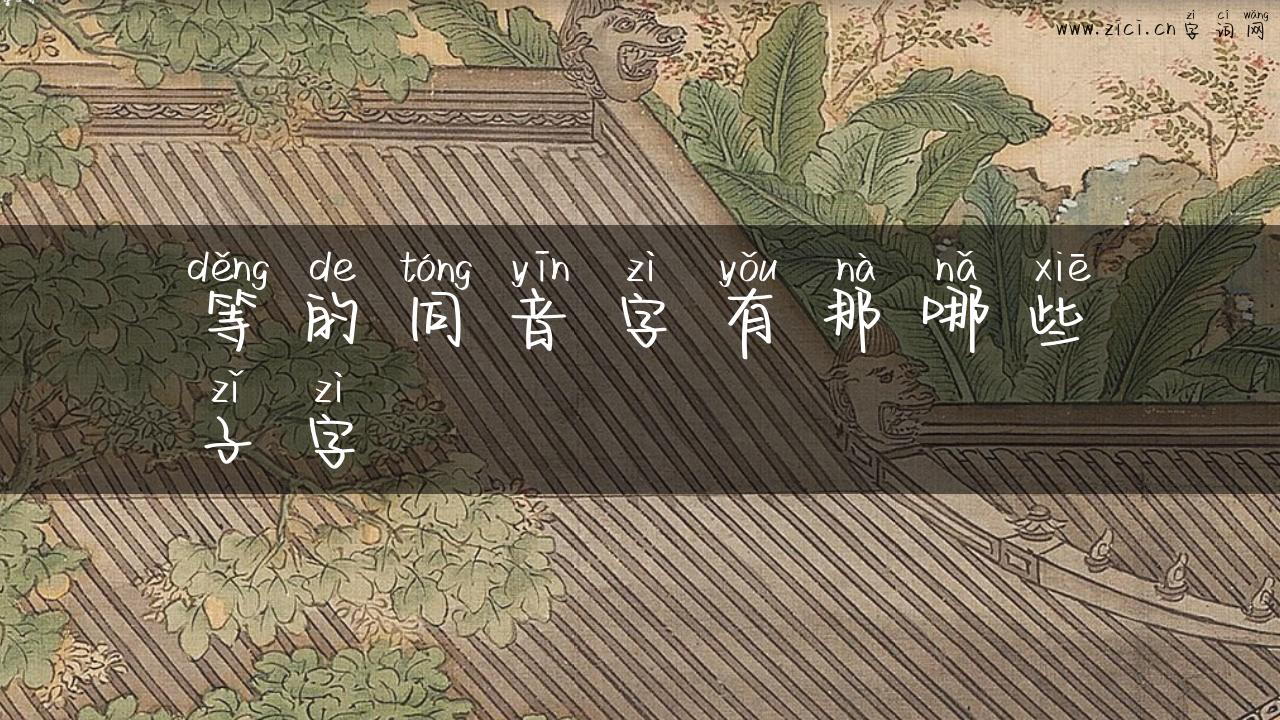 zì cí wǎng
www.zici.cn 字词网
děng de tóng yīn zì yǒu nà nǎ xiē
等的同音字有那哪些
zǐ zì
子字